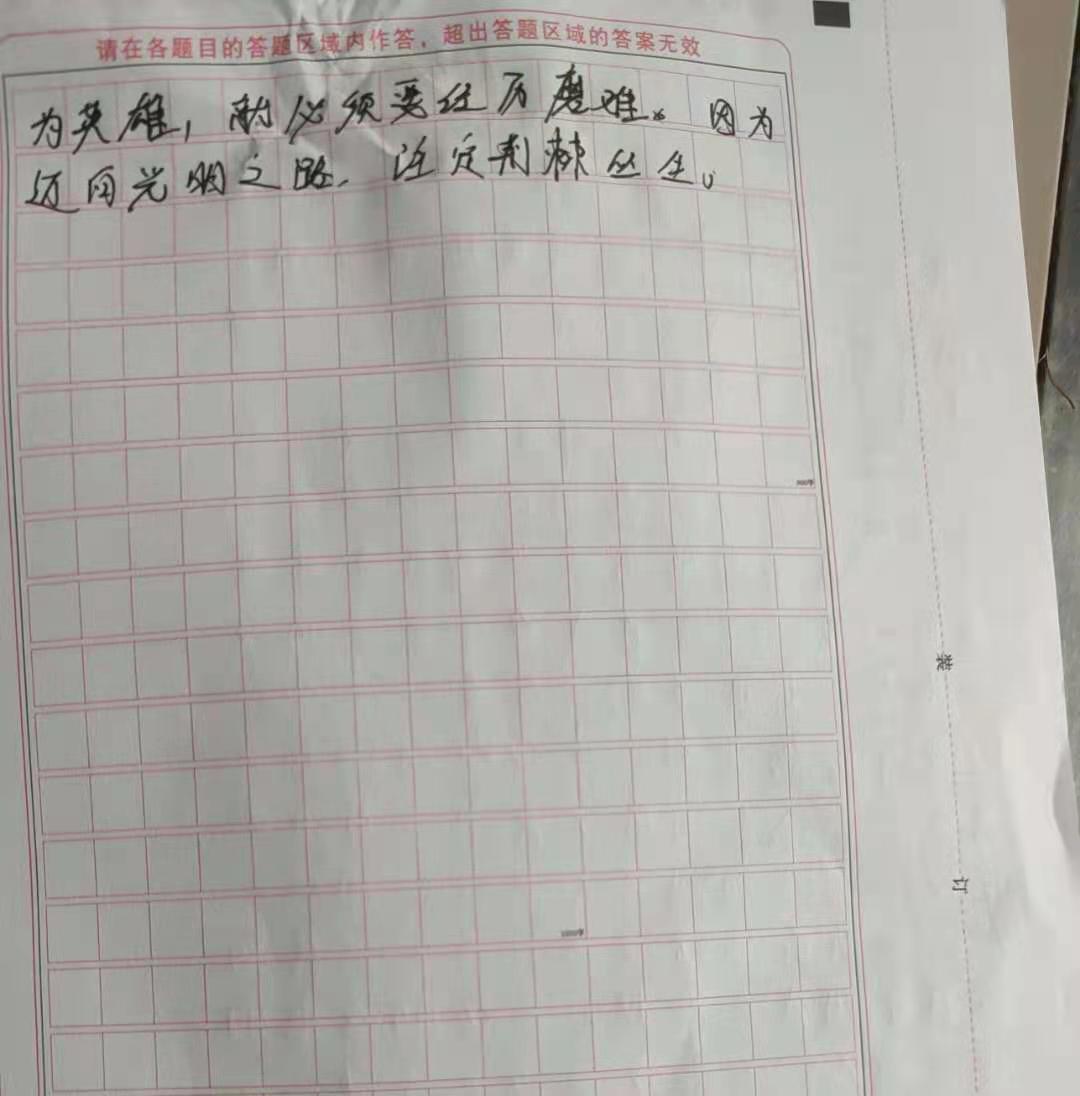 请在各题目的答题区域内作答，超出答题区域的答案无效
为英雄，就必须要经历磨难。因为
迈向光明之路，注定荆棘丛生。
装
订